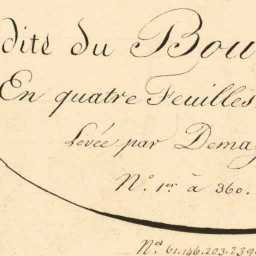 dite du Bou
En quatre Feuilles
Levée par Dema
N.º 1.er à 360.
N.os 61.146.203.239